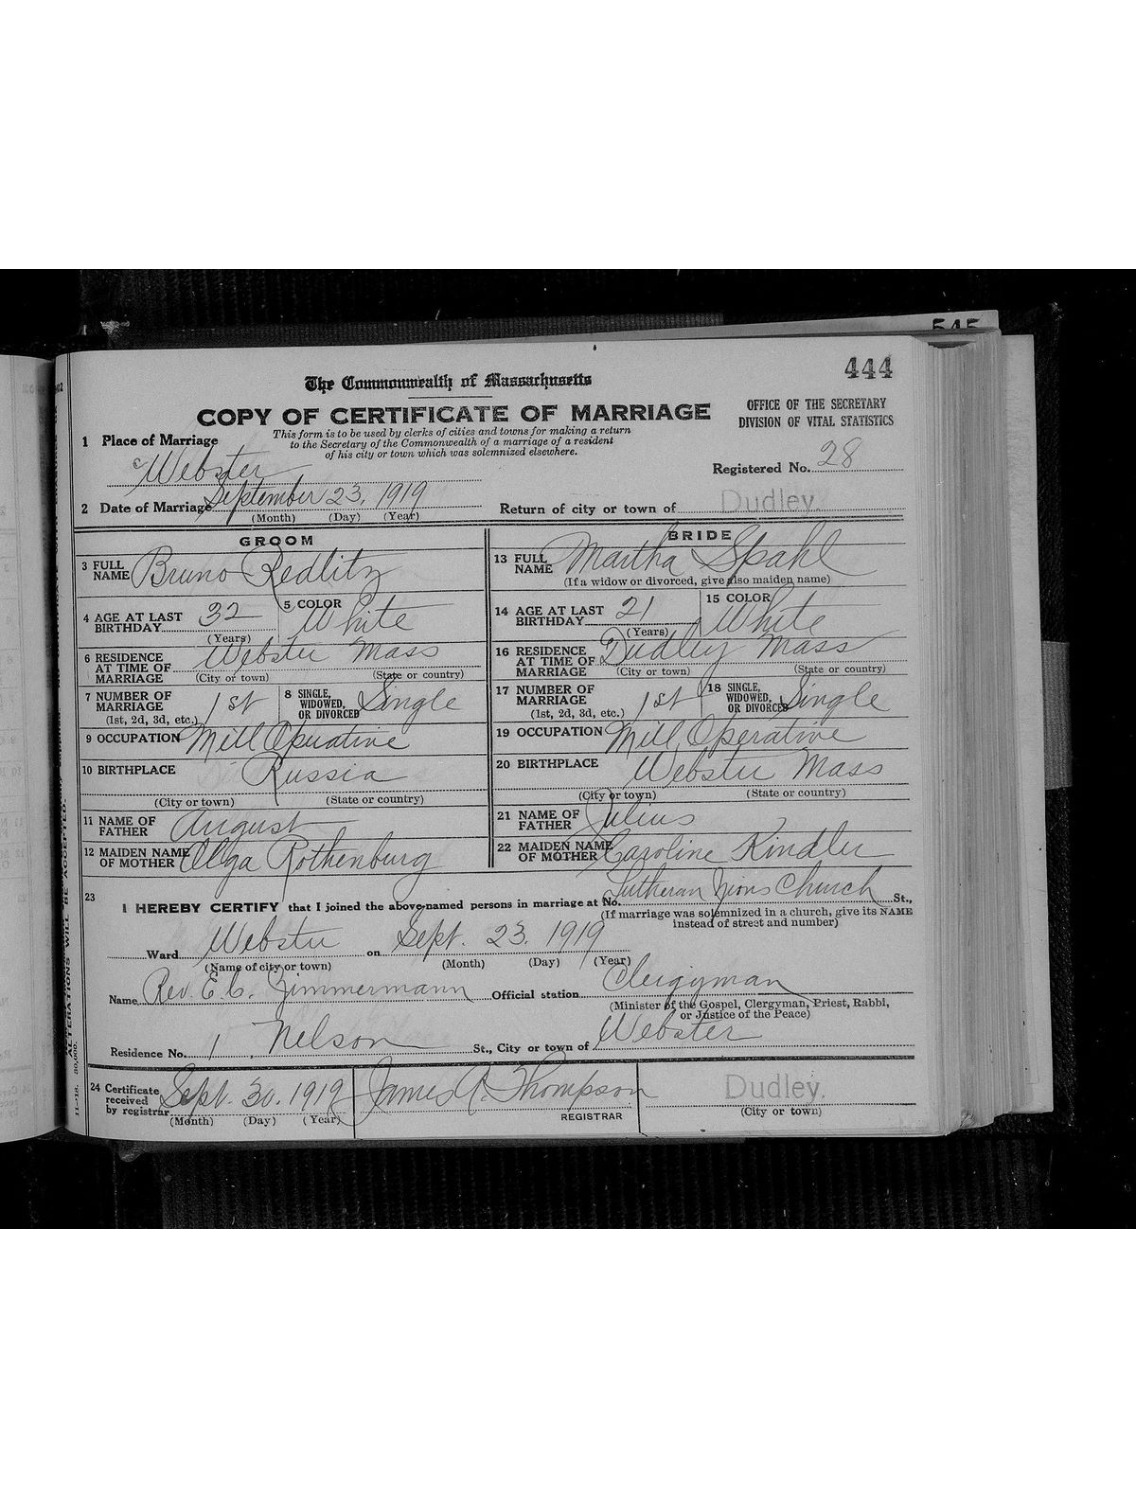 545
444
The Commonwealth of Massachusetts
COPY OF CERTIFICATE OF MARRIAGE
This form is to be used by clerks of cities and towns for making a return
to the Secretary of the Commonwealth of a marriage of a resident
of his city or town which was solemnized elsewhere.
OFFICE OF THE SECRETARY
DIVISION OF VITAL STATISTICS
1 Place of Marriage
Webster
Registered No. 28
2 Date of Marriage September 23, 1919
(Month) (Day) (Year)
Return of city or town of Dudley.
GROOM
3 FULL NAME Bruno Redlitz
4 AGE AT LAST BIRTHDAY 32
(Years)
5 COLOR White
6 RESIDENCE AT TIME OF MARRIAGE Webster Mass
(City or town) (State or country)
7 NUMBER OF MARRIAGE 1st
(1st, 2d, 3d, etc.)
8 SINGLE, WIDOWED, OR DIVORCED Single
9 OCCUPATION Mill Operative
10 BIRTHPLACE Russia
(City or town) (State or country)
11 NAME OF FATHER August
12 MAIDEN NAME OF MOTHER Olga Rothenburg
BRIDE
13 FULL NAME Martha Spahl
(If a widow or divorced, give also maiden name)
14 AGE AT LAST BIRTHDAY 21
(Years)
15 COLOR White
16 RESIDENCE AT TIME OF MARRIAGE Dudley Mass
(City or town) (State or country)
17 NUMBER OF MARRIAGE 1st
(1st, 2d, 3d, etc.)
18 SINGLE, WIDOWED, OR DIVORCED Single
19 OCCUPATION Mill Operative
20 BIRTHPLACE Webster Mass
(City or town) (State or country)
21 NAME OF FATHER Julius
22 MAIDEN NAME OF MOTHER Caroline Kindler
23 I HEREBY CERTIFY that I joined the above-named persons in marriage at No. Lutheran Zions Church St.,
(If marriage was solemnized in a church, give its NAME
instead of street and number)
Ward Webster on Sept. 23. 1919
(Name of city or town) (Month) (Day) (Year)
Name Rev. E. C. Zimmermann Official station Clergyman
(Minister of the Gospel, Clergyman, Priest, Rabbi,
or Justice of the Peace)
Residence No. 1, Nelson St., City or town of Webster
24 Certificate received by registrar Sept. 30. 1919
(Month) (Day) (Year)
James A. Thompson
REGISTRAR
Dudley.
(City or town)
ALTERATIONS WILL BE ACCEPTED.